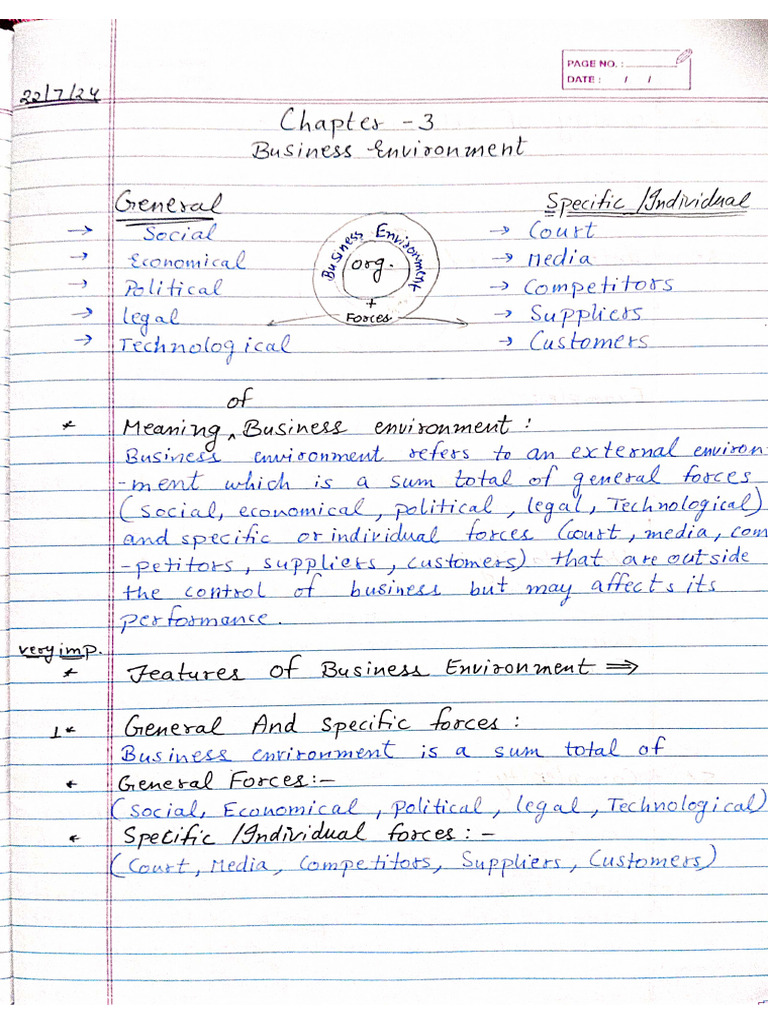 PAGE NO. :
DATE : / /
22/7/24
Chapter - 3
Business Environment
General
Specific /Individual
→ Social
→ Economical
→ Political
→ legal
→ Technological
Business Environment
org.
+
Forces
→ Court
→ Media
→ Competitors
→ Suppliers
→ Customers
of
* Meaning ^ Business environment :
Business environment refers to an external environ-
-ment which is a sum total of general forces
(social, economical, political, legal, Technological)
and specific or individual forces (court, media, com
-petitors, suppliers, customers) that are outside
the control of business but may affects its
performance.
very imp.
* Features of Business Environment ⇒
1* General And specific forces :
Business environment is a sum total of
* General Forces:-
(Social, Economical, political, legal, Technological)
* Specific /Individual forces : -
(Court, Media, Competitors, Suppliers, Customers)